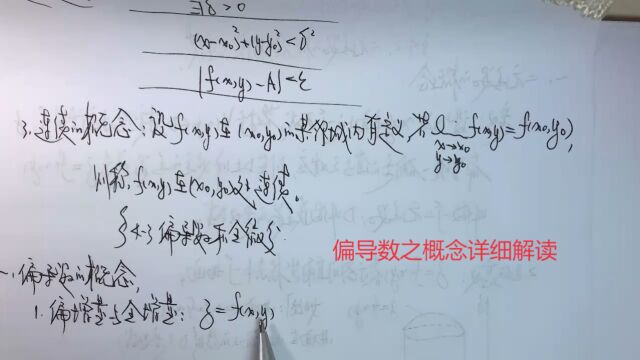 ∃δ > 0
(x-x₀)²+(y-y₀)²<δ²
|f(x,y)-A|<ε
3.连续的概念:设f(x,y)在(x₀,y₀)的某邻域内有定义,若lim f(x,y)=f(x₀,y₀),
x→x₀
y→y₀
则称f(x,y)在(x₀,y₀)处连续。
§4-3 偏导数和全微分
偏导数之概念详细解读
一.偏导数的概念
1.偏增量与全增量: z=f(x,y)